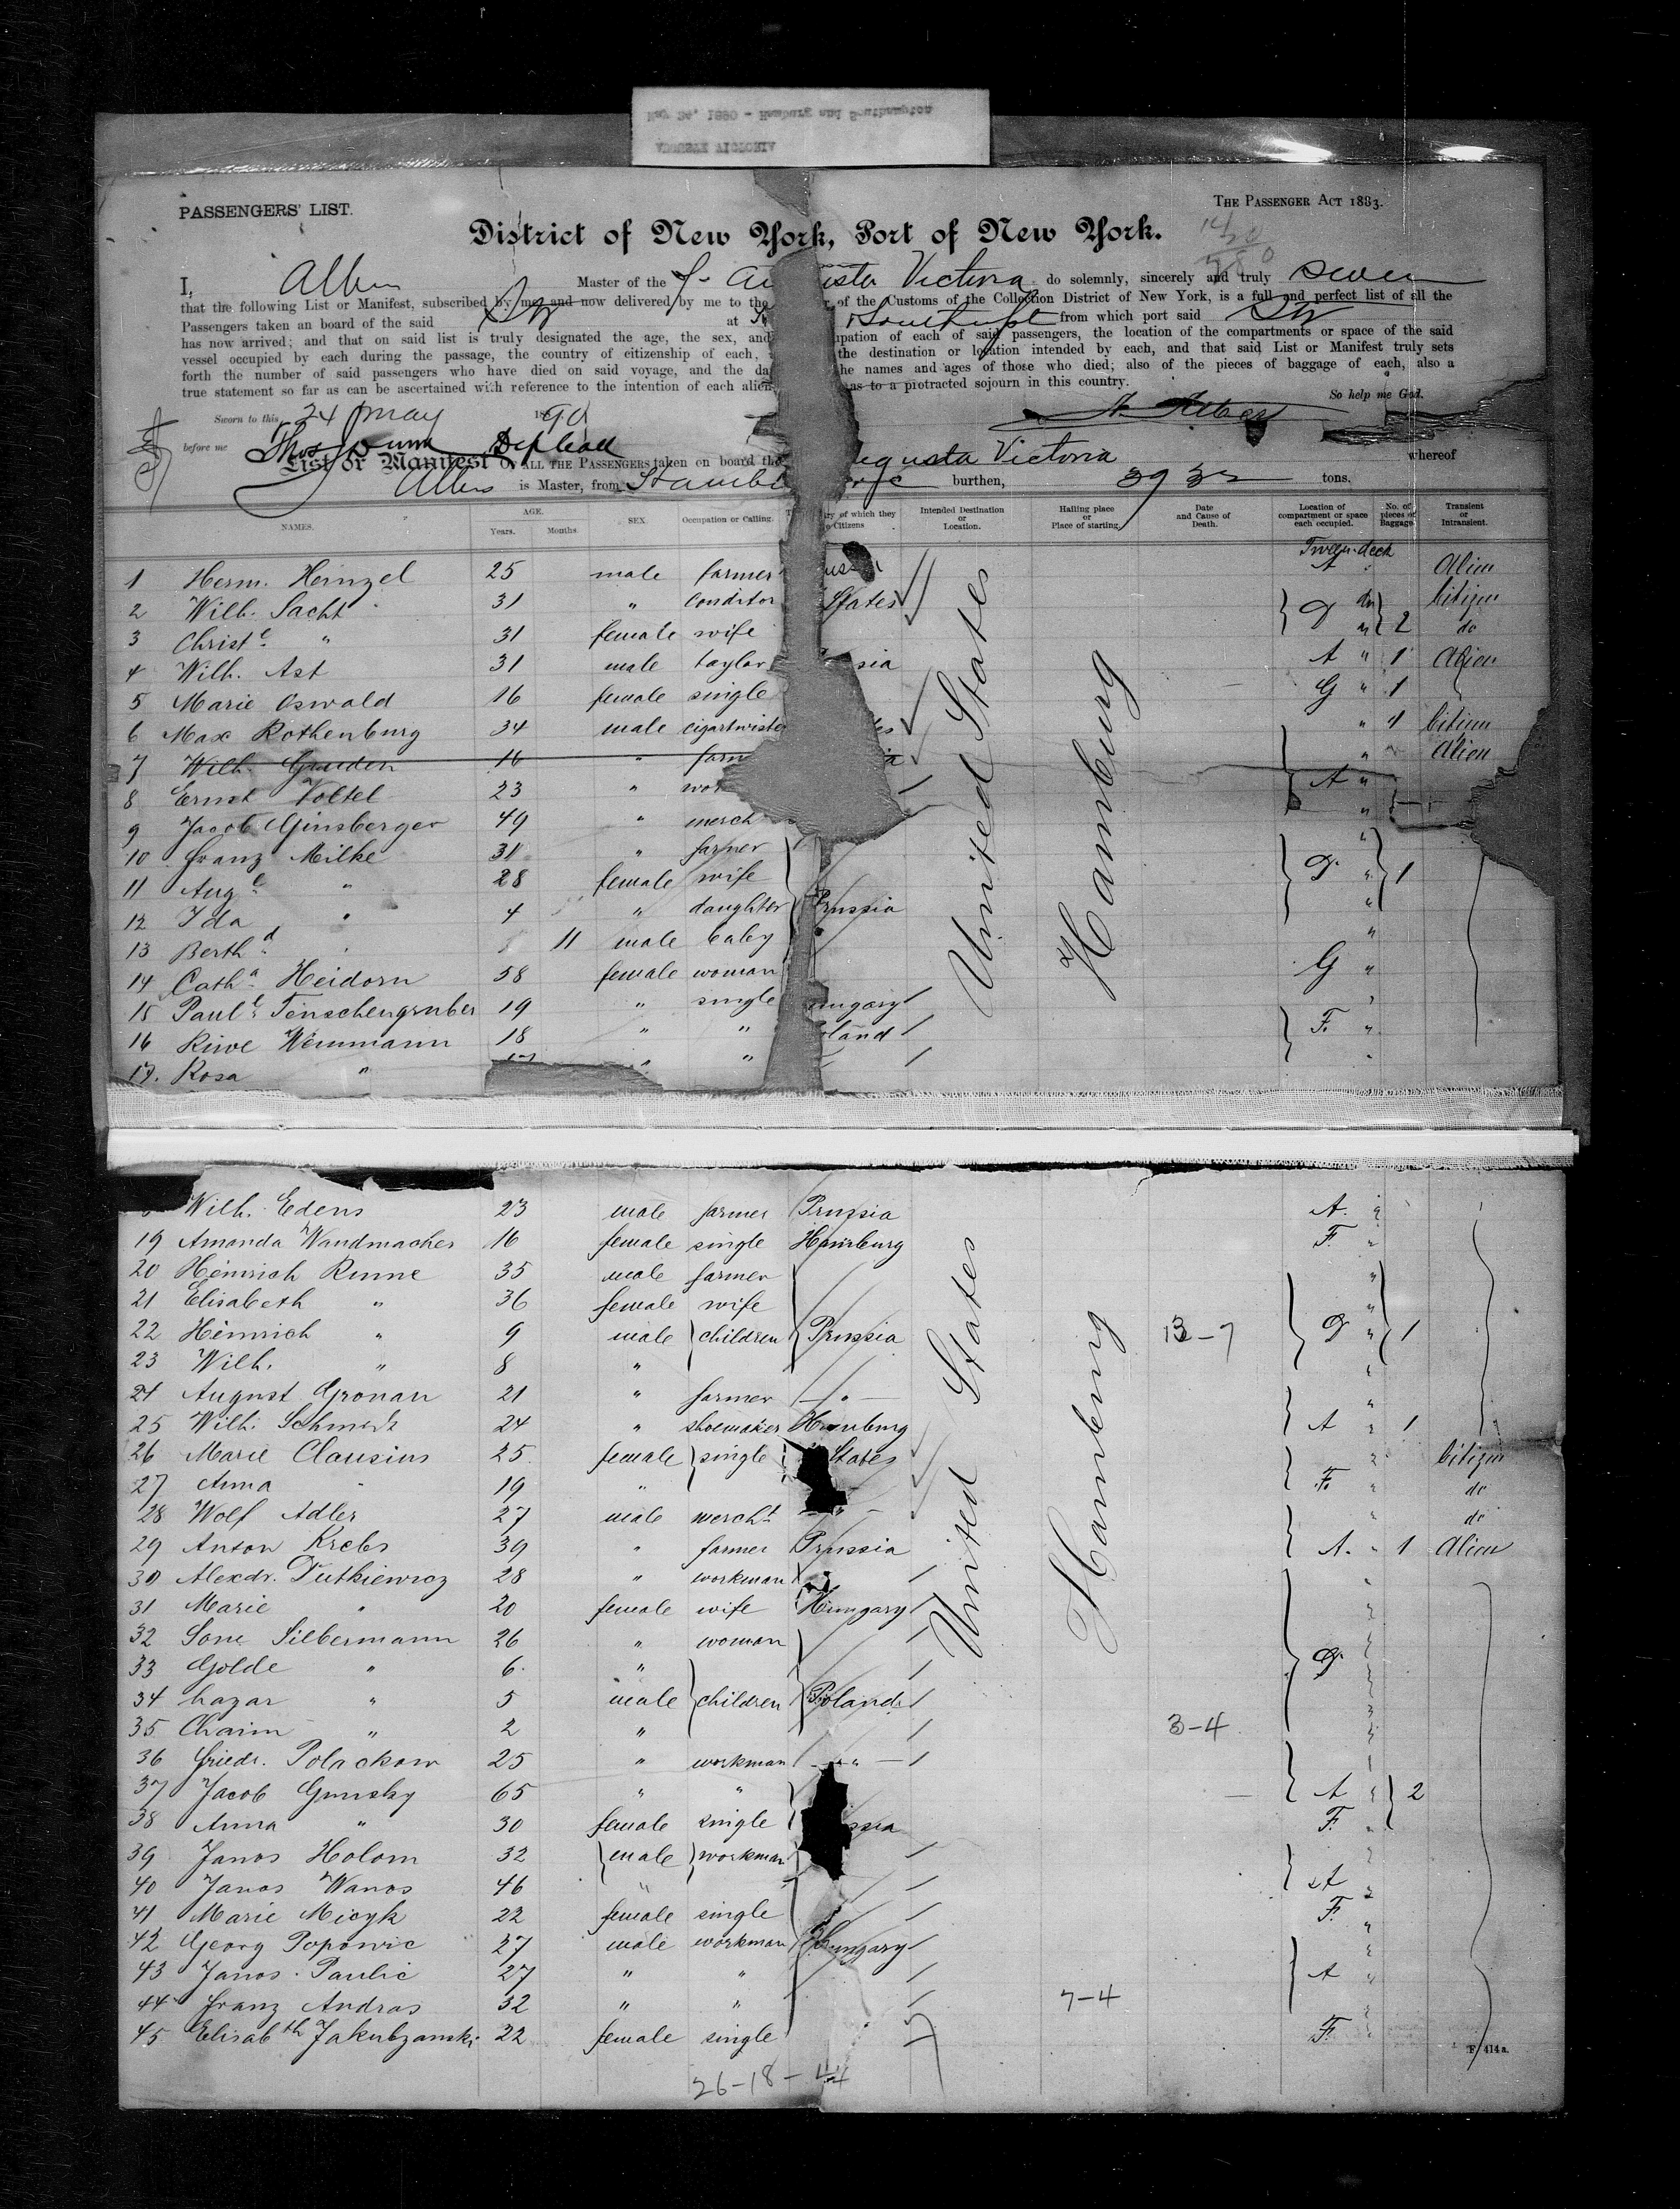 May 24, 1890 - Hamburg and Southampton
AUGUSTE VICTORIA
PASSENGERS' LIST.
THE PASSENGER ACT 1883.
District of New York, Port of New York.
I, Albers Master of the S. Au sta Victoria do solemnly, sincerely and truly swear
that the following List or Manifest, subscribed by me, and now delivered by me to the of the Customs of the Collection District of New York, is a full and perfect list of all the
Passengers taken on board of the said at Southampt from which port said
has now arrived; and that on said list is truly designated the age, the sex, and upation of each of said passengers, the location of the compartments or space of the said
vessel occupied by each during the passage, the country of citizenship of each, the destination or location intended by each, and that said List or Manifest truly sets
forth the number of said passengers who have died on said voyage, and the da he names and ages of those who died; also of the pieces of baggage of each, also a
true statement so far as can be ascertained with reference to the intention of each alien as to a protracted sojourn in this country.
So help me God.
Sworn to this 24 May 1890 A. Albers
before me Thos Dunn Dep Coll
List or Manifest OF ALL THE PASSENGERS taken on board the ugusta Victoria whereof
Albers is Master, from Hamb burthen, 3932 tons.
NAMES. AGE. Years. Months SEX. Occupation or Calling. ry of which they Citizens Intended Destination or Location. Hailing place or Place of starting. Date and Cause of Death. Location of compartment or space each occupied. No. of pieces of Baggage Transient or Intransient.
Tween-deck
1 Herm. Heinzel 25 male farmer A " Alien
2 Wilh. Sacht 31 " Conditor States D do 2 Citizen
3 Christe " 31 female wife " do
4 Wilh. Ast 31 male taylor sia A " 1 Alien
5 Marie Oswald 16 female single G " 1
6 Max Rothenburg 34 male cigartwiste es " 1 Citizen
7 Wilh. Grueden 16 " farm a " Alien
8 Ernst Voltel 23 " wor A "
9 Jacob Ginsberger 49 " merch "
10 Franz Milke 31 " farmer "
11 Auge " 28 female wife D " 1
12 Ida " 4 " daughter Prussia "
13 Berthd " 11 male baby "
14 Catha Heidorn 58 female woman G "
15 Paule Tenschengruber 19 " single ungary "
16 Riwe Weinmann 18 " " oland F. "
17. Rosa " " " "
United States
Hamburg
Wilh. Edens 23 male farmer Prussia A. "
19 Amanda Wandmacher 16 female single Hamburg F. "
20 Heinrich Rinne 35 male farmer "
21 Elisabeth " 36 female wife "
22 Heinrich " 9 male children Prussia 13-7 D " 1
23 Wilh. " 8 " "
24 August Gronau 21 " farmer " "
25 Wilh. Schmidt 24 " shoemaker Hamburg A " 1
26 Marie Clausius 25 female single States " Citizen
27 Anna 19 " F. " do
28 Wolf Adler 27 male mercht " " do
29 Anton Krebs 39 " farmer Prussia A. " 1 Alien
30 Alexdr. Dutkiewicz 28 " workman "
31 Marie " 20 female wife Hungary "
32 Sone Silbermann 26 " woman "
33 Golde " 6 " D
34 Lazar " 5 male children Poland "
35 Chaim " 2 " 3-4 "
36 Friedr. Polackow 25 " workman "
37 Jacob Gunsky 65 " " A " 2
38 Anna " 30 female single ssia F. "
39 Janos Holom 32 male workman "
40 Janos Wanos 46 " A "
41 Marie Micyk 22 female single F. "
42 Georg Popowic 27 male workman Hungary "
43 Janos Paulic 27 " " A "
44 Franz Andras 32 " " 7-4 "
45 Elisabth Jakubzanski 22 female single F. "
United States
Hamburg
F. 414 a.
26-18-44